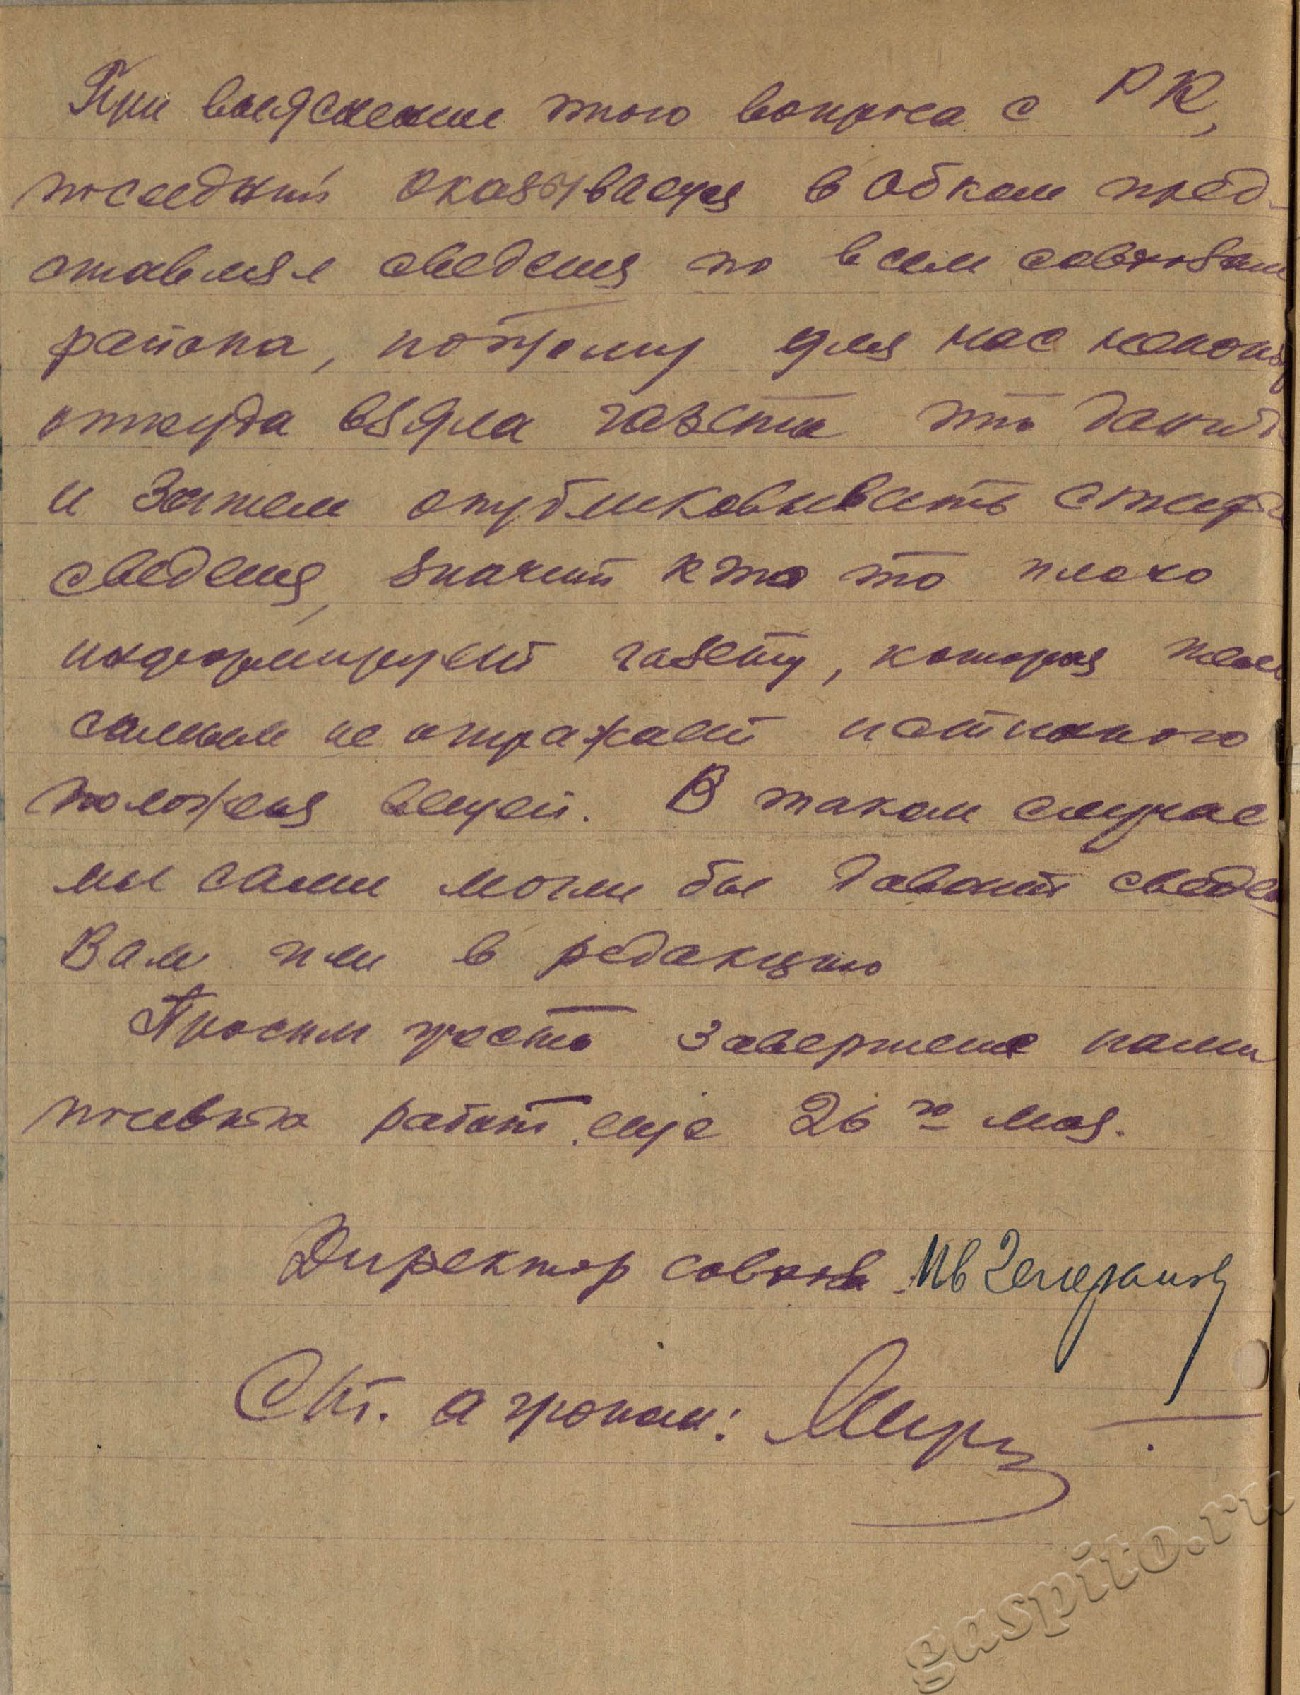 При выяснении этого вопроса с РК,
последний оказывается в обком пред-
ставлял сведения по всем совхозам
района, поэтому для нас непоня
откуда взяла газета это
и зачем опубликовывать
сведения, значит кто то плохо
информирует газету, которая тем
самым не отражает истинного
положения вещей. В таком случае
мы сами могли бы давать сведен
Вам или в редакцию
Просим учесть завершение нами
посевных работ еще 26го мая.
Директор совхоза
Ст. агроном:
gaspito.ru